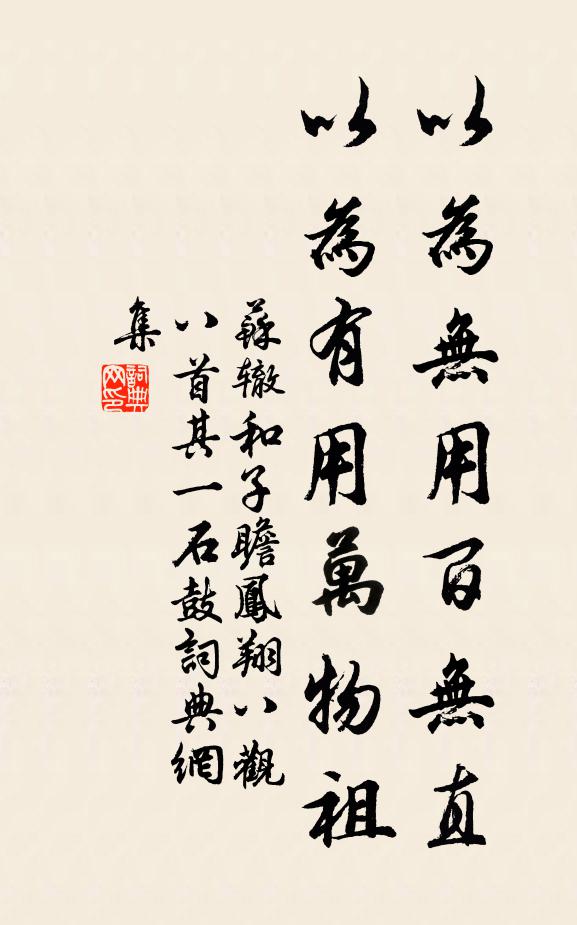 以為無用百無直
以為有用萬物祖
蘇辙和子瞻鳳翔八觀
八首其一石鼓詞典網
集
詞典
网印